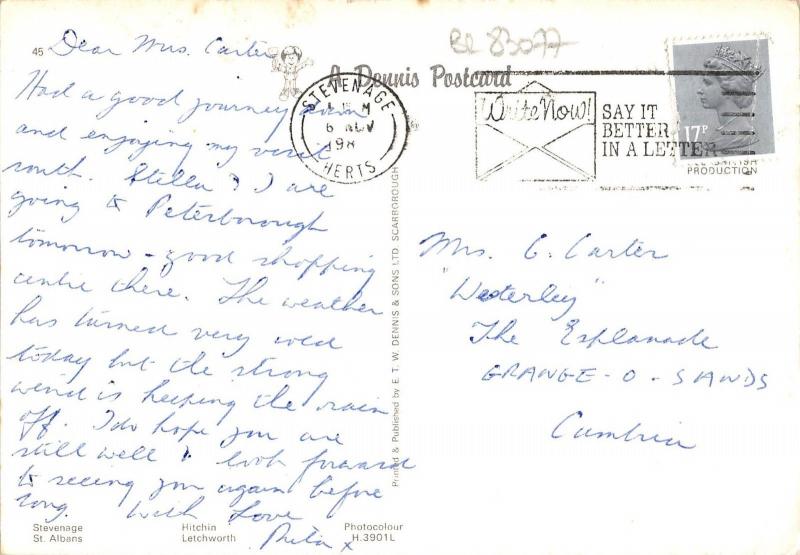 45
Dear Mrs. Carter
Had a good journey down
and enjoying my visit
south. Stella & I are
going to Peterborough
tomorrow - good shopping
centre there. The weather
has turned very cold
today but the strong
wind is keeping the rain
off. I do hope you are
still well & look forward
to seeing you again before
long. With Love
x
Stevenage
St. Albans
Hitchin
Letchworth
Photocolour
H.3901L
BL 83077
A Dennis Postcard
STEVENAGE
6 NOV
198
HERTS
Write Now!
SAY IT
BETTER
IN A LETTER
17P
PRODUCTION
Printed & Published by E. T. W. DENNIS & SONS LTD. SCARBOROUGH
Mrs. C. Carter
"Westerley"
The Esplanade
GRANGE-O-SANDS
Cumbria